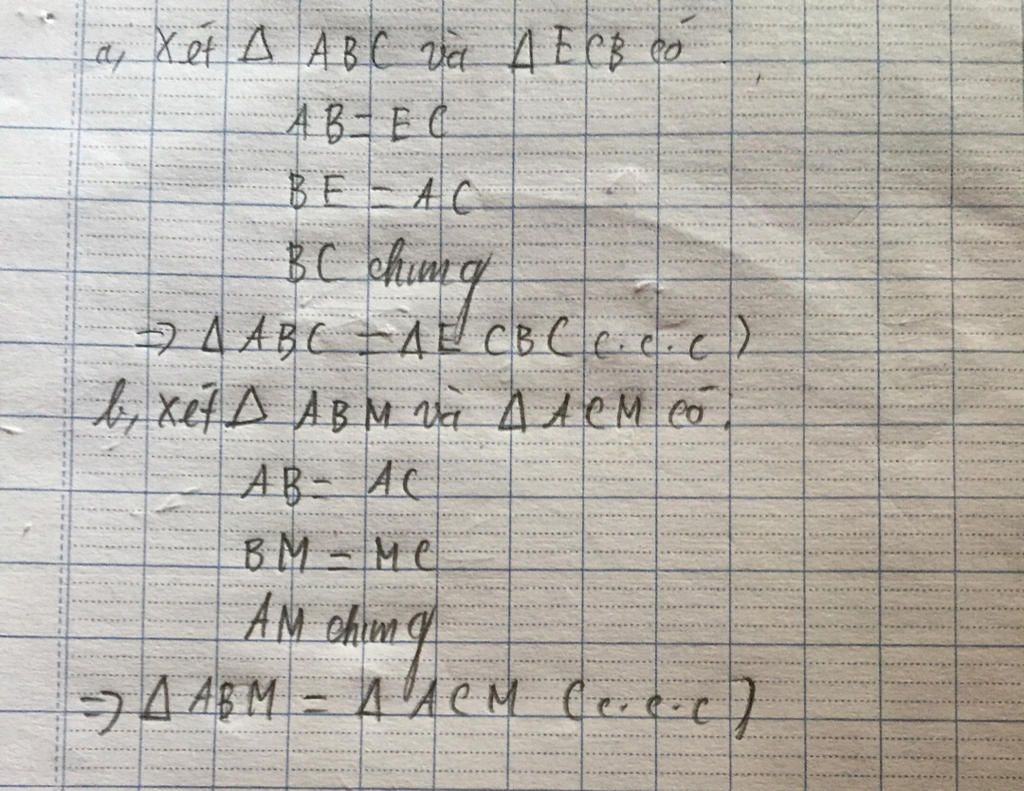 a, Xét Δ ABC và Δ ECB có
AB = EC
BE = AC
BC chung
=> Δ ABC = Δ ECB (c.c.c)
b, Xét Δ ABM và Δ ACM có:
AB = AC
BM = MC
AM chung
=> Δ ABM = Δ ACM (c.c.c)